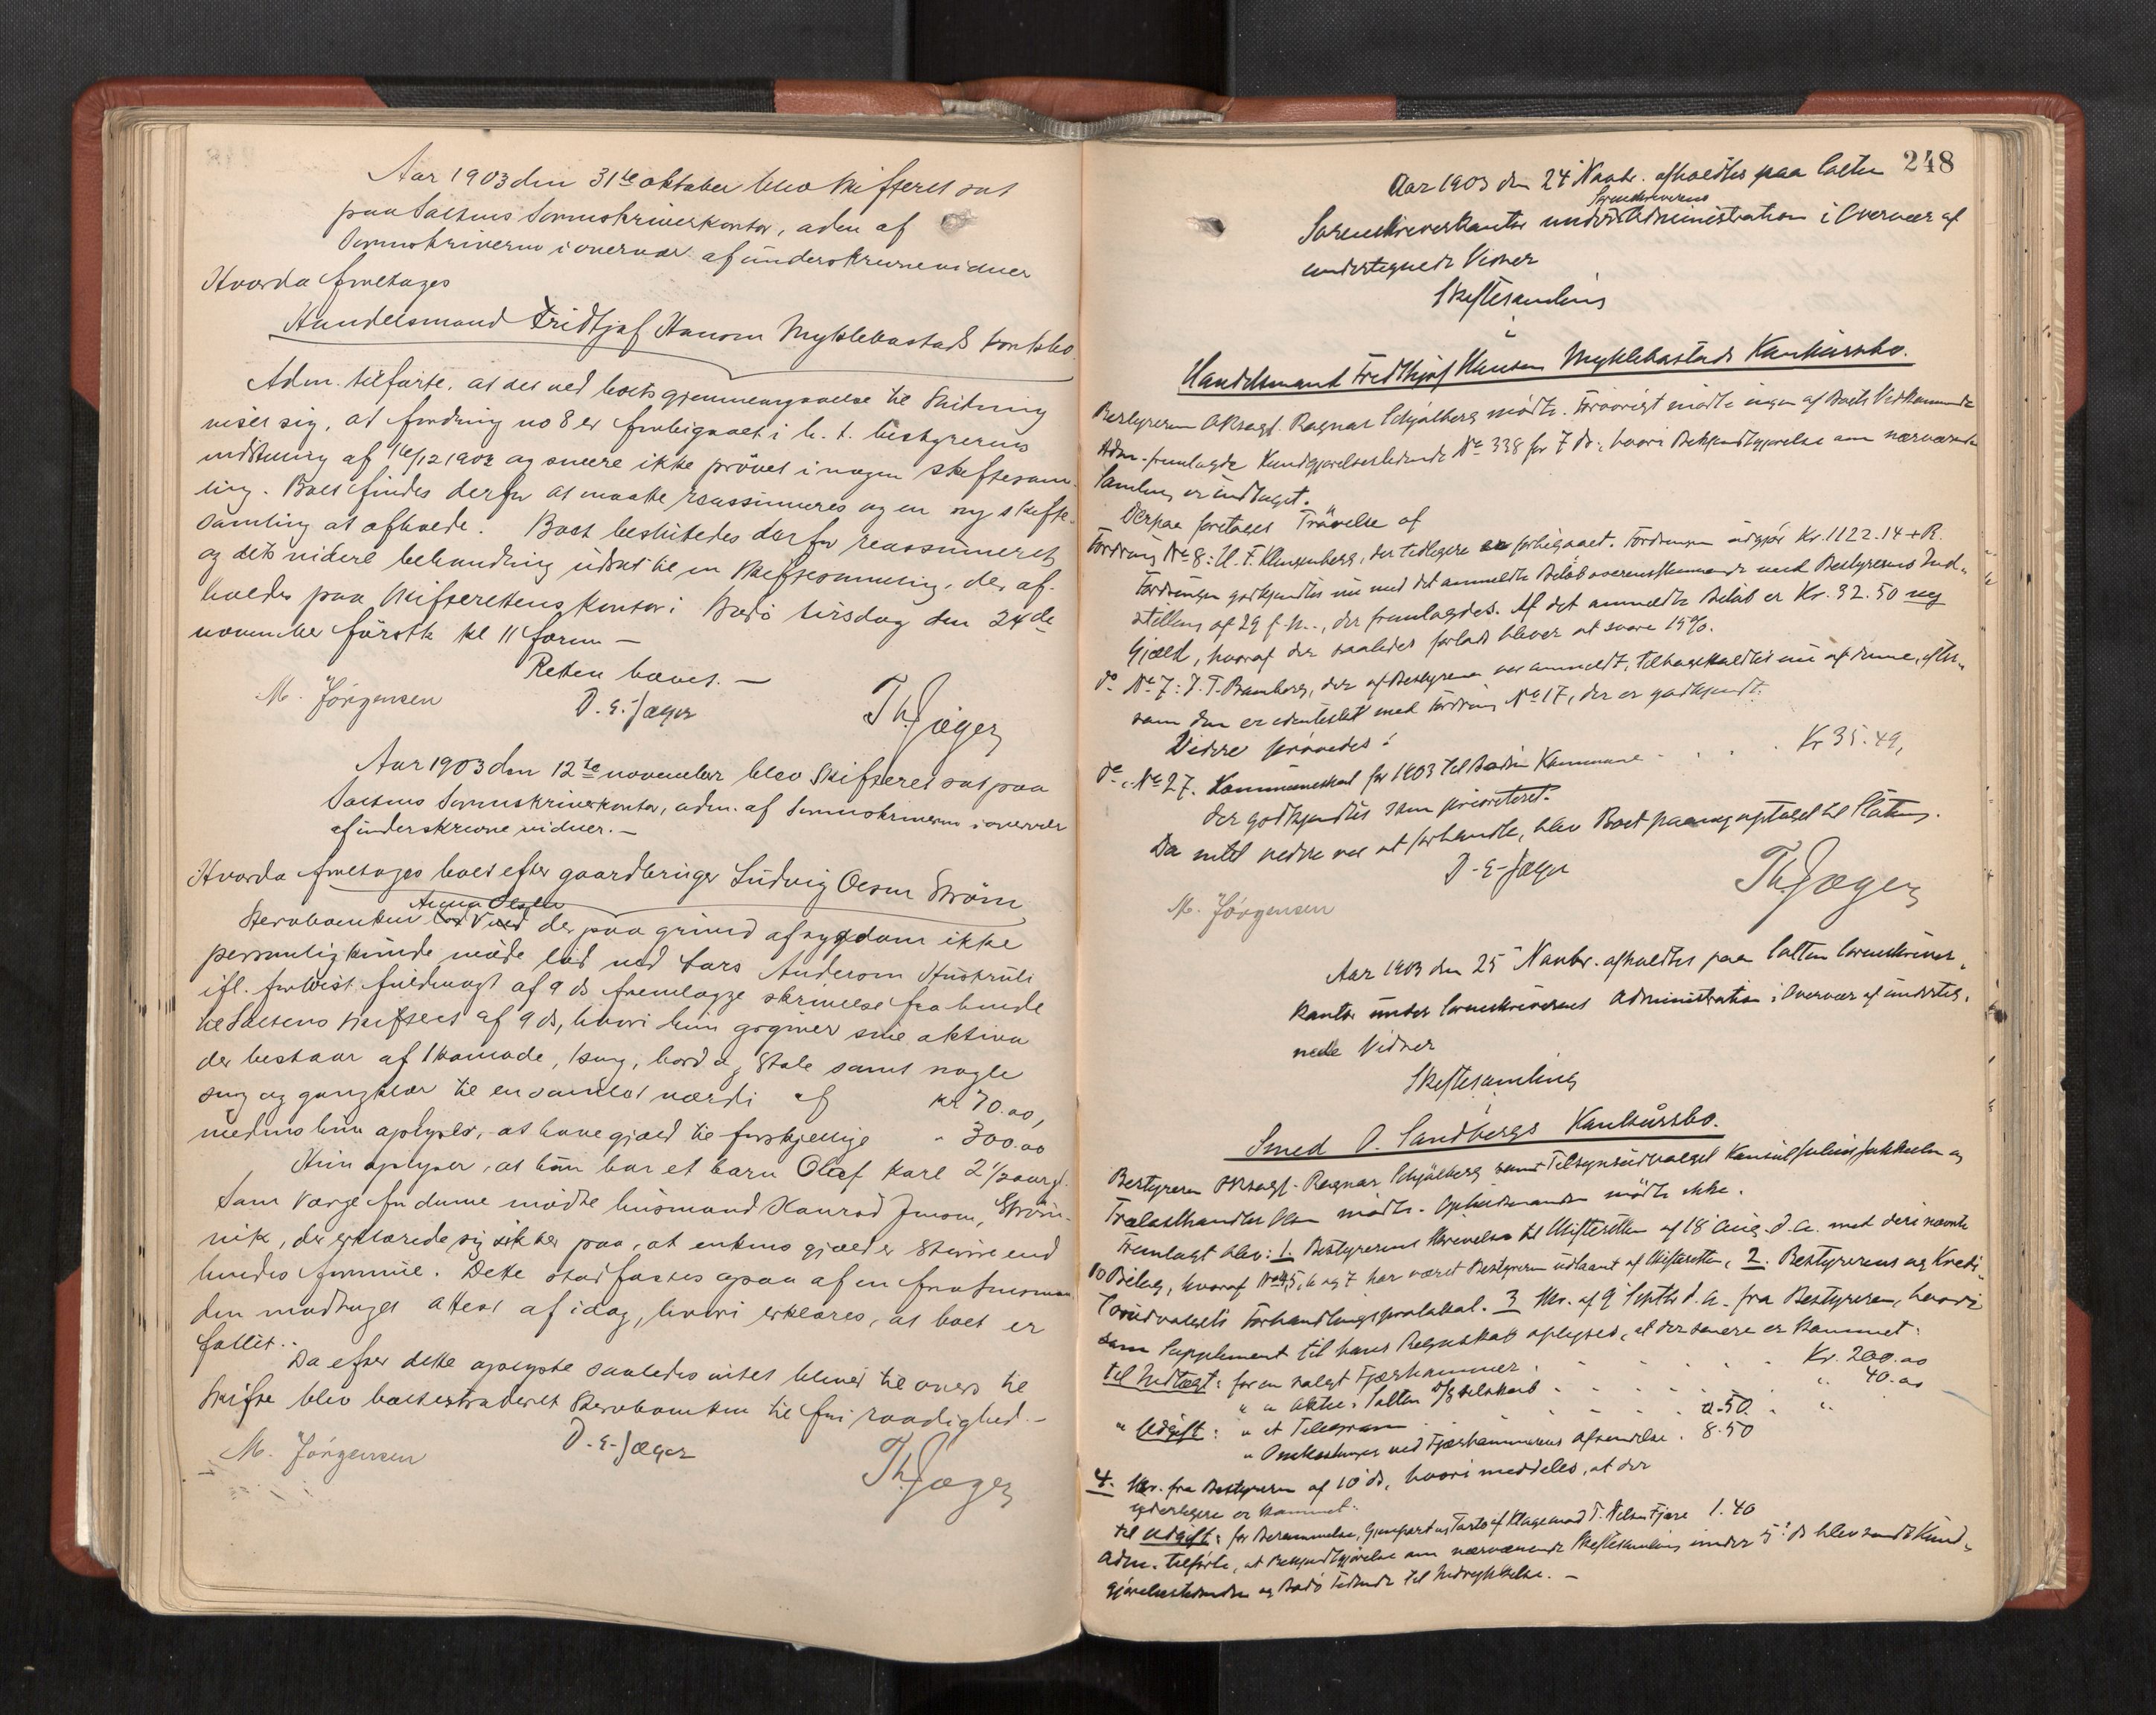 Aar 1903 den 31te oktober blev skifteret sat
paa Saltens Sorenskriverkontor, adm af
Sorenskriveren i overvær af underskrevne vidner
Hvorda foretages
Handelsmand Fridtjof Hansen Myklebostads konkbo
Adm. tilførte, at det ved boets gjennemgaaelse til slutning
viser sig, at fordring no 8 er forbigaaet i h. t. bestyrerens
indstilling af 16/12 1902 og senere ikke prøvet i nogen skiftesam-
ling. Boet findes derfor at maatte reassumeres og en ny skifte-
samling at afholde. Boet besluttedes derfor reassumeret
og dets videre behandling udsat til en skiftesamling, der af-
holdes paa skifterettens kontor i Bodø tirsdag den 24de
november førstk kl 11 form —
Retten hævet. —
M. Jørgensen D. E. Jæger Th Jæger
Aar 1903 den 12te november blev Skifteret sat paa
Saltens Sorenskriverkontor, adm. af Sorenskriveren i overvær
af underskrevne vidner. —
Hvorda foretages boet efter gaardbruger Ludvig Olsen Strøm
Anna Olsen
Stervboenken der paa grund af sygdom ikke
personlig kunde møde lod ved Lars Andersen
ifl. forevist fuldmagt af 9 ds fremlægge skrivelse fra hende
til Saltens skifteret af 9 ds, hvori hun opgiver sine aktiva
der bestaar af 1 komode, 1 seng, bord og Stole samt nogle
seng og gangklær til en samlet værdi af kr 70.00,
medens hun oplyser, at have gjæld til forskjellige " 300.00
Hun oplyser, at hun har et barn Olaf Karl 2 1/2 aar gl.
Som Værge for denne mødte husmand Konrad Jensen, Strøm-
vik, der erklærede sig sikker paa, at enkens gjæld er større end
hendes formue. Dette stadfæstes ogsaa af en fra lensman-
den modtaget attest af idag, hvori erklæres, at boet er
fallit. -
Da efter dette oplyste saaledes intet bliver til overs til
Skifte blev boet extraderet Stervboenken til fri raadighed. -
M. Jørgensen D. E. Jæger Th Jæger
248
Aar 1903 den 24 Novbr. afholdtes paa Salten
Sorenskriverens
Sorenskriverkontor under Administration i Overvær af
undertegnede Vidner
Skiftesamling
i
Handelsmand Fredthjof Hansen Myklebostads Konkursbo.
Bestyreren ORsagf. Ragnar Schjølberg mødte. Forøvrigt mødte ingen af Boets Vedkommende
Adm. fremlagde Kundgjørelsestidende No 338 for 7 ds., hvori Bekjendtgjørelse om nærværende
Samling er indtaget.
Derpaa foretages Prøvelse af
Fordring No 8: H. F. Klingenberg, der tidligere er forbigaaet. Fordringen udgjør Kr. 1122.14 + R.
Fordringen godkjendtes nu med det anmeldte Beløb overensstemmende med Bestyrerens Ind-
stilling af 29 f. M., der fremlagdes. Af det anmeldte Beløb er Kr. 32.50 ny
Gjæld, hvoraf der saaledes forlods bliver at svare 15%.
do No 7: J. T. Bamberg, der af Bestyreren var anmeldt, tilbagekaldtes nu af denne, efter-
som den er identisk med Fordring No 17, der er godkjendt.
Videre prøvedes:
do. No 27. Kommuneskat for 1903 til Bodin Kommune . . . . Kr 35.49,
der godkjendtes som prioriteret.
Da intet videre var at forhandle, blev Boet paany optaget til Slutning.
D. E. Jæger
M. Jørgensen Th Jæger
Aar 1903 den 25 Novbr. afholdtes paa Salten Sorenskriver-
kontor under Sorenskriverens Administration i Overvær af underteg-
nede Vidner
Skiftesamling
i
Smed O. Sandbergs Konkursbo.
Bestyreren ORsagf. Ragnar Schjølberg samt Tilsynsudvalget Konsul Julius Jakhelln og
Trælasthandler Olsen mødte. Opbudsmanden mødte ikke.
Fremlagt blev: 1. Bestyrerens Skrivelse til Skifteretten af 18 Aug. d. A. med deri nævnte
10 Bilag, hvoraf No 4, 5, 6 og 7 har været Bestyreren udlaant af Skifteretten, 2. Bestyrerens og Kredi-
torudvalgets Forhandlingsprotokol. 3 Skr. af 9 Septbr d. A. fra Bestyreren, hvori
som Supplement til hans Regnskab oplyses, at der senere er kommet:
til Indtægt: for en solgt Fjærhammer . . . . . Kr. 200.00
" " Aktie i Salten D/S selskab . . . . . " 40.00
" Udgift: " et Telegram . . . . 0.50 . "
" Omkostninger ved Fjærhammerens Afsendelse . 8.50
4. Skr. fra Bestyreren af 10 ds, hvori meddeles, at der
yderligere er kommet:
til Udgift: for Berammelse, Gjenpart og Porto af Klage mod T. Nilsen Fjære 1.40
Adm. tilførte, at Bekjendtgjørelse om nærværende Skiftesamling under 5. ds blev sendt Kund-
gjørelsestidende og Bodø Tidende til Indrykkelse. —